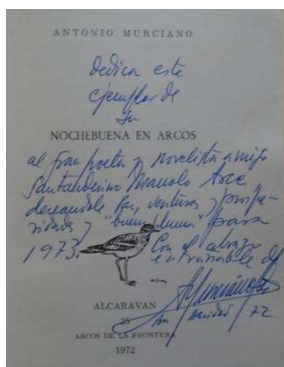 ANTONIO MURCIANO
dedica este
ejemplar de
su
NOCHEBUENA EN ARCOS
al gran poeta y novelista amigo
santanderino Manolo Arce
deseandole paz, ventura, prospe-
ridades y "buena pluma" para
1973. Con el abrazo
entrañable de
A. Murciano
navidad 72
ALCARAVAN
ARCOS DE LA FRONTERA
1972